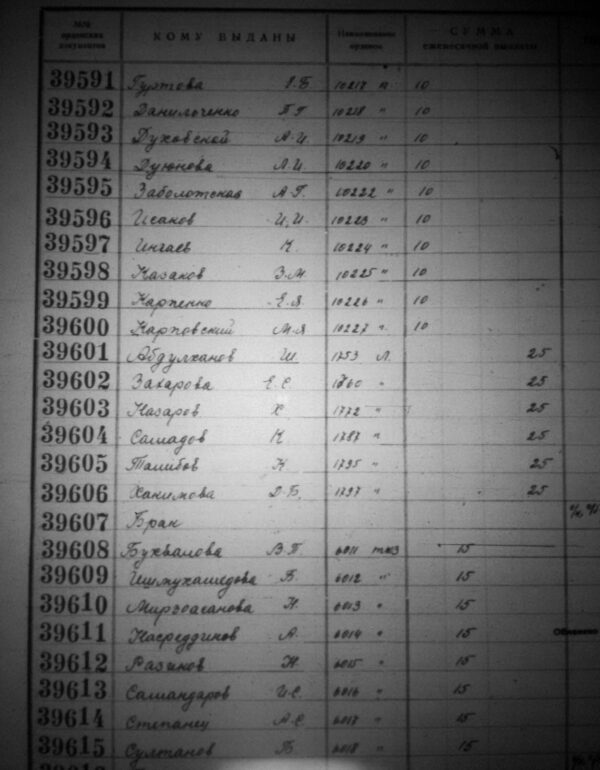 №№ орденских документов КОМУ ВЫДАНЫ Наименование ордена СУММА ежемесячной выплаты
39591 Гуртова Р.Б 10217 " 10
39592 Данильченко Б.Г 10218 " 10
39593 Духовской А.И. 10219 " 10
39594 Дуюнова Л.И. 10220 " 10
39595 Заболотская А.Г. 10222 " 10
39596 Исаков И.И. 10223 " 10
39597 Ингаев К. 10224 " 10
39598 Казаков З.М. 10225 " 10
39599 Карпенко Е.Я. 10226 " 10
39600 Карповский М.Я 10227 " 10
39601 Абдулханов Ш. 1753 Л. 25
39602 Захарова Е.С. 1760 " 25
39603 Назаров Х. 1772 " 25
39604 Самадов К 1787 " 25
39605 Талибов К. 1795 " 25
39606 Ханимова Д.Б. 1797 " 25
39607 Бран
39608 Бухвалова В.П. 6011 ткз 15
39609 Ишмухамедова Б. 6012 " 15
39610 Мирзоасанова Н. 6013 " 15
39611 Насреддинов А. 6014 " 15
39612 Разиков Ж. 6015 " 15
39613 Самандаров И.С. 6016 " 15
39614 Степанец А.С. 6017 " 15
39615 Султанов Б. 6018 " 15